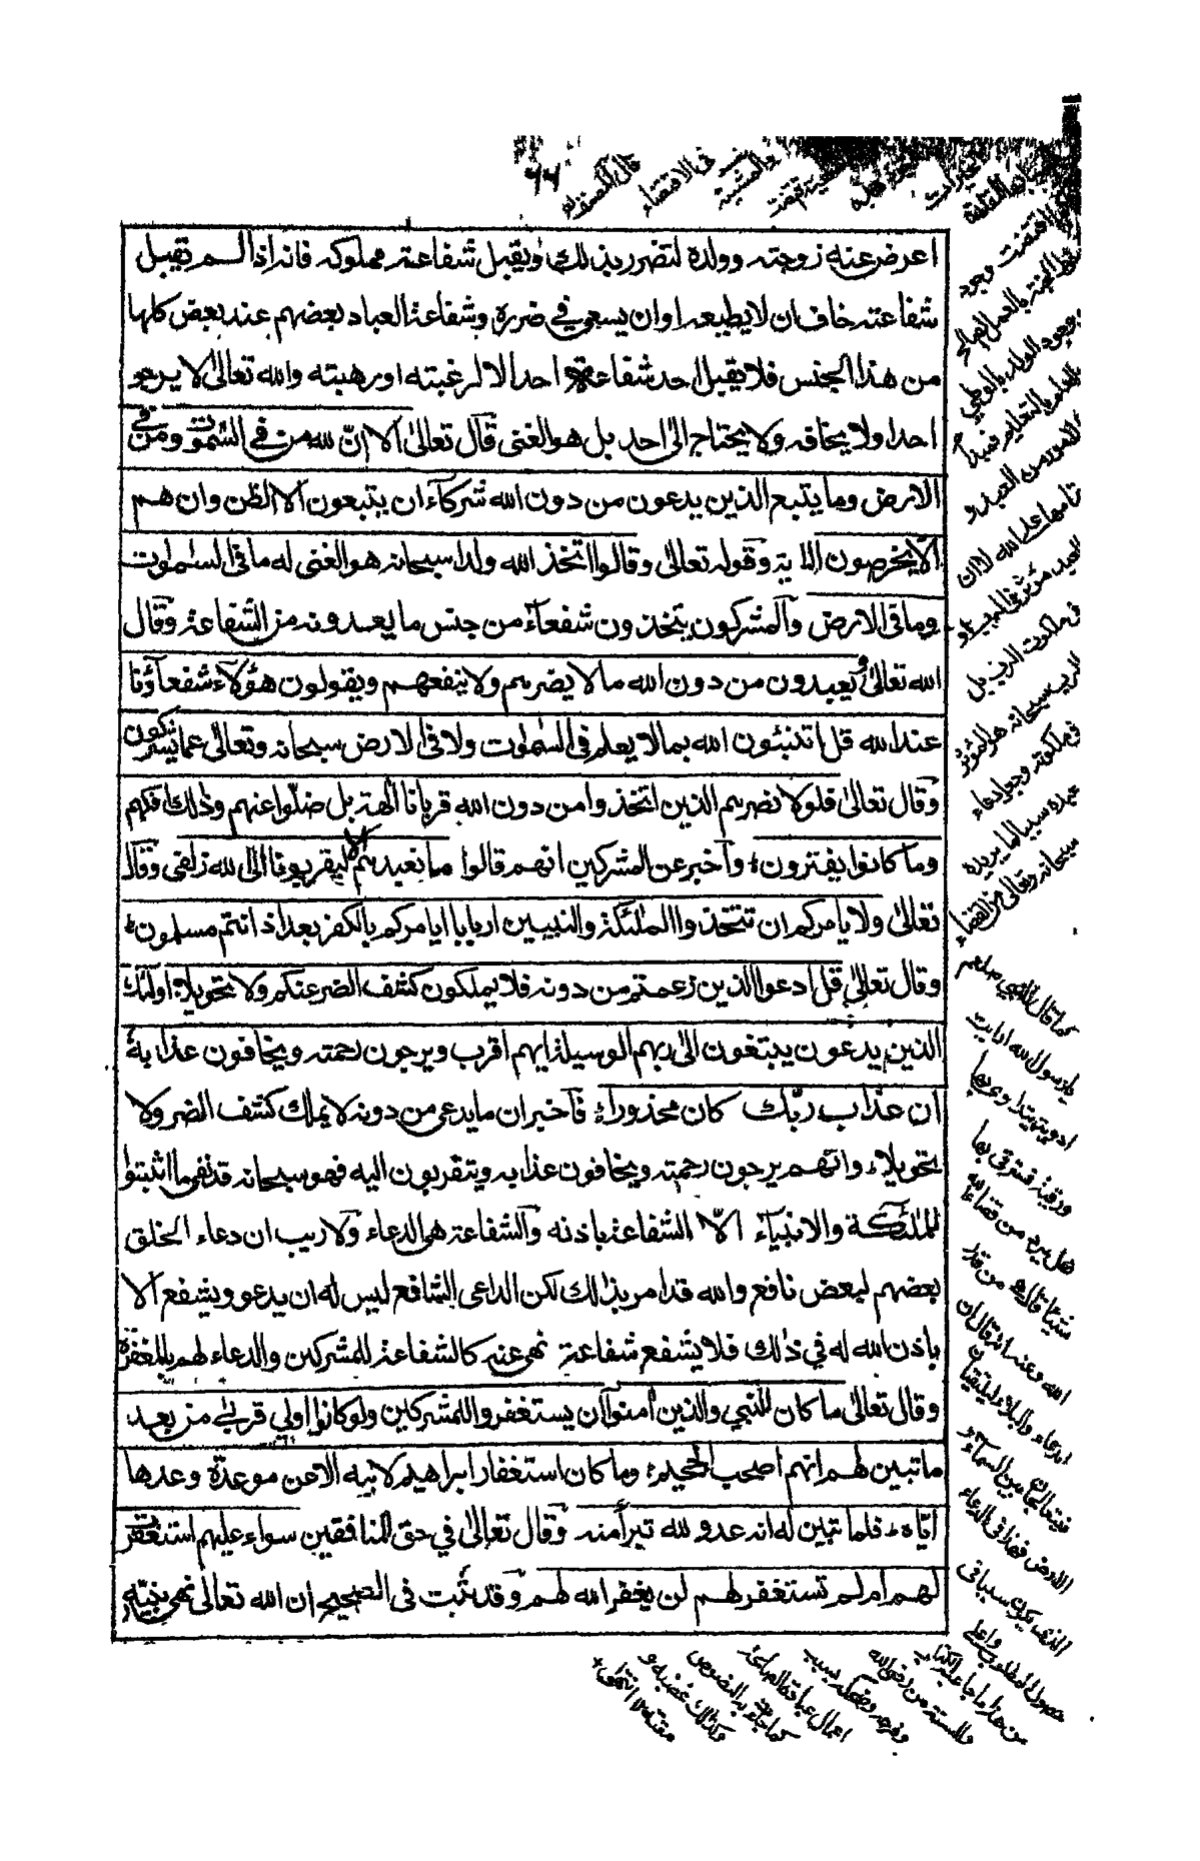 اعرض عنه زوجته وولده لتضرر بذلك ويقبل شفاعة مملوكه فانه اذا لم تقبل
شفاعته خاف ان لا يطيعه او ان يسعى في ضرره وشفاعة العباد بعضهم عند بعض كلها
من هذا الجنس فلا يقبل احد شفاعة احد الا لرغبته او رهبته والله تعالىٰ لا يرجو
احدا ولا يخافه ولا يحتاج الىٰ احد بل هو الغنى قال تعالىٰ الا انّ لله من في السمٰوٰت ومن في
الارض وما يتبع الذين يدعون من دون الله شركآء ان يتبعون الا الظن وان هم
الّا يخرصون الاية وقوله تعالىٰ وقالوا اتخذ الله ولدا سبحانه هو الغنى له ما فى السمٰوٰت
وما فى الارض والمشركون يتخذون شفعآء من جنس ما يعهدونه من الشفاعة وقال
الله تعالىٰ ويعبدون من دون الله ما لا يضرهم ولا ينفعهم ويقولون هؤلاء شفعآؤنا
عند الله قل اتنبئون الله بما لا يعلم فى السمٰوٰت ولا فى الارض سبحانه وتعالىٰ عما يشركون
وقال تعالىٰ فلولا نصرهم الذين اتخذوا من دون الله قربانا اٰلهة بل ضلّوا عنهم وذٰلك افكهم
وما كانوا يفترون؛ وأخبر عن المشركين انهم قالوا ما نعبدهم الا ليقربونا الى الله زلفى وقال
تعالىٰ ولا يأمركم ان تتخذوا الملٰئكة والنبيين اربابا ايامركم بالكفر بعد اذ انتم مسلمون
وقال تعالىٰ قل ادعوا الذين زعمتم من دونه فلا يملكون كشف الضر عنكم ولا تحويلا؛ اولٰئك
الذين يدعون يبتغون الىٰ ربهم الوسيلة ايهم اقرب ويرجون رحمته ويخافون عذابه
ان عذاب ربّك كان محذورا؛ فأخبر ان ما يدعى من دونه لا يملك كشف الضر ولا
تحويلا؛ وانهم يرجون رحمته ويخافون عذابه ويتقربون اليه فهو سبحانه قد نفى ما اثبتوا
للملٰئكة والانبياء الّا الشفاعة باذنه والشفاعة هى الدعاء ولا ريب ان دعاء الخلق
بعضهم لبعض نافع والله قد امر بذٰلك لكن الداعى الشافع ليس له ان يدعو ويشفع الا
باذن الله له في ذٰلك فلا يشفع شفاعة نهى عنه كالشفاعة للمشركين والدعاء لهم بالمغفرة
وقال تعالىٰ ما كان للنبي والذين اٰمنوا ان يستغفروا للمشركين ولو كانوا اولي قربىٰ من بعد
ما تبين لهم انهم اصحٰب الجحيم؛ وما كان استغفار ابراهيم لابيه الا عن موعدة وعدها
ايّاه؛ فلما تبين له انه عدو لله تبرأ منه وقال تعالىٰ في حق المنافقين سواء عليهم استغفرت
لهم ام لم تستغفر لهم لن يغفر الله لهم وقد ثبت فى الصحيح ان الله تعالىٰ نهى نبيّه
وجود
بالعمل الصالح
بوجود الولد بالوطي
من العبد و
الرب سبحانه هو المؤثر
في ملكوته وجعل دعاء
عبده سببا لما يريده
سبحانه وتعالى من القضاء
كما قال النبي صلعم
يا رسول الله ارايت
ادوية نتداوى بها
ورقية نسترقى بها
هل يرد من قضاء الله
شيئا قال هو من قدر
الله وعنه انه قال ان
الدعاء والبلاء ليلتقيان
بين السماء و
الارض فهذا في الدعاء
الذي يكون سببا في
حصول المطلوب